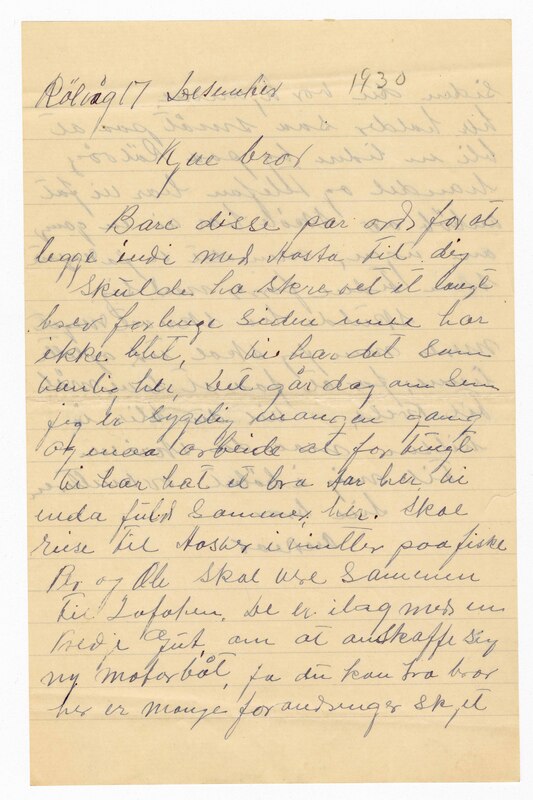 Rölvåg 17 Desember 1930
Kjære bror
Bare disse par ord for at
legge indi med Aasta til dig
Skulde ha skrevet et langt
brev for lenge siden men har
ikke blit, vi har det som
vanlig her, det går dag om senn
jeg er sygelig mangen gang
og maa arbeide at for tungt
vi har hat et bra aar her vi
enda fuld sammen her. Skal
reise til i vinter paa fiske
Br og Ole skal være sammen
til Lofoten. De er ilag med en
tredje gut, om at anskaffe sig
ny motorbåt, ja du kan tro bror
her er mange forandringer skjet